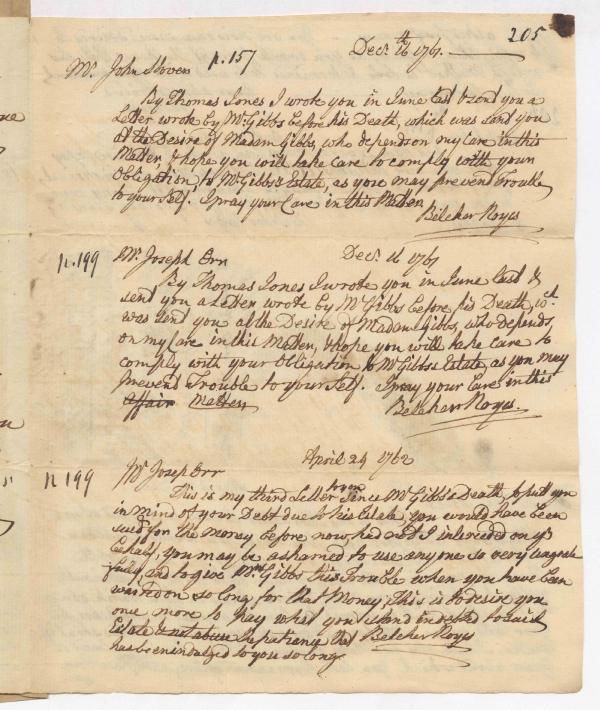 205
Decr. 16th 1761.
Mr. John Stoven p. 157
By Thomas Jones I wrote you in June last & sent you a
Letter wrote by Mr Gibbs before his Death, which was sent you
at the Desire of Madam Gibbs, who depends on my Care in this
Matter, & hope you will take care to comply with your
Obligation, to Mr Gibbs's Estate, as you may prevent Trouble
to your Self. I pray your Care in this Matter.
Belcher Noyes
p. 199 Mr. Joseph Orr Decr. 16 1761
By Thomas Jones I wrote you in June last &
sent you a Letter wrote by Mr Gibbs before his Death, wch.
was sent you at the Desire of Madam Gibbs, who depends
on my Care in this Matter, & hope you will take care to
comply with your Obligation to Mr Gibbs's Estate, as you may
prevent Trouble to your Self. I pray your Care in this
affair Matter.
Belcher Noyes.
April 24 1762
p 199 Mr Joseph Orr
This is my third Letter Since Mr Gibbs's Death, to put you
in mind of your Debt due to his Estate, you would have been
sued for the money before now had not I interceded on yr
behalf, you may be ashamed to use any one so very ungrate
fully, and to give Mrs Gibbs this Trouble when you have been
waited on so long for that Money, This is to desire you
once more to pay what you stand indebted to said
Estate & not abuse the patience that Belcher Noyes
has been indulged to you so long.